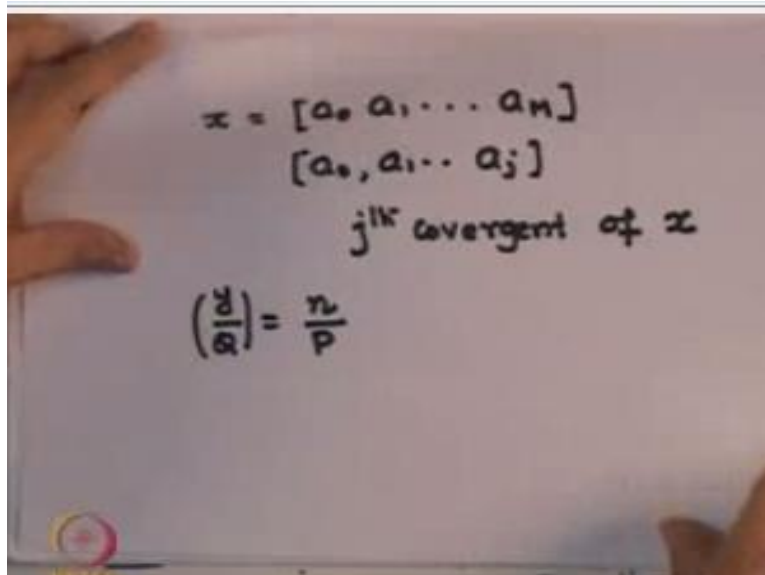 x = [a₀ a₁ . . . a_M]
[a₀, a₁ . . a_j]
jth covergent of x
(y/Q) = n/P